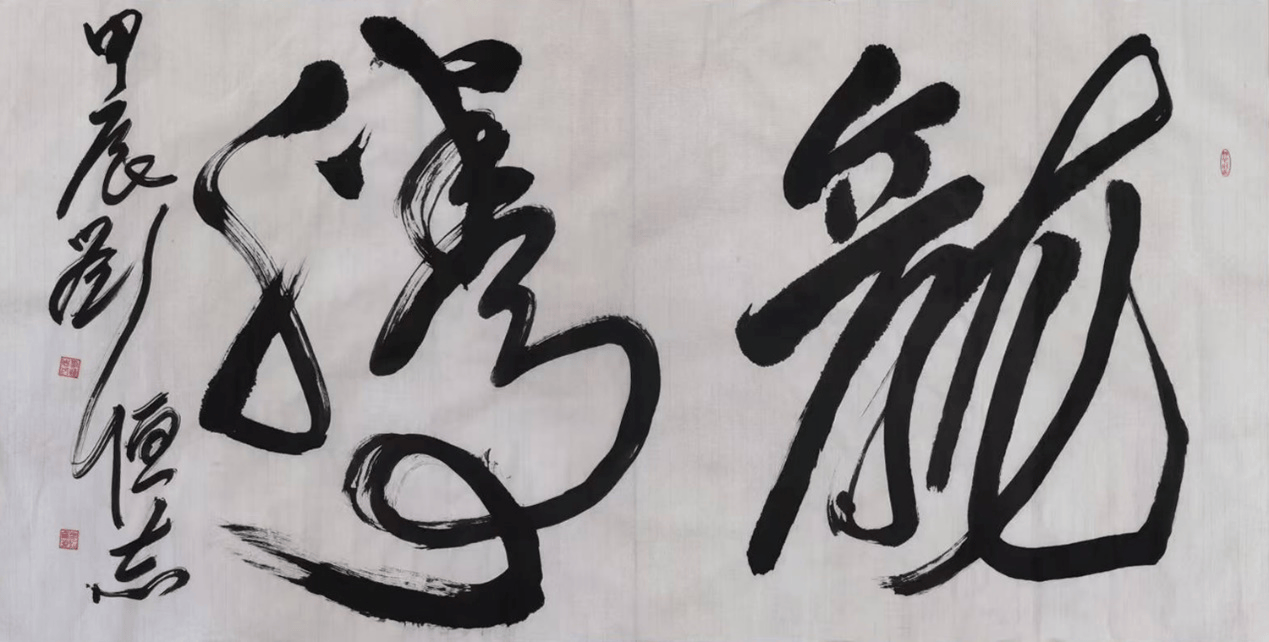 龍騰
甲辰劉恒志